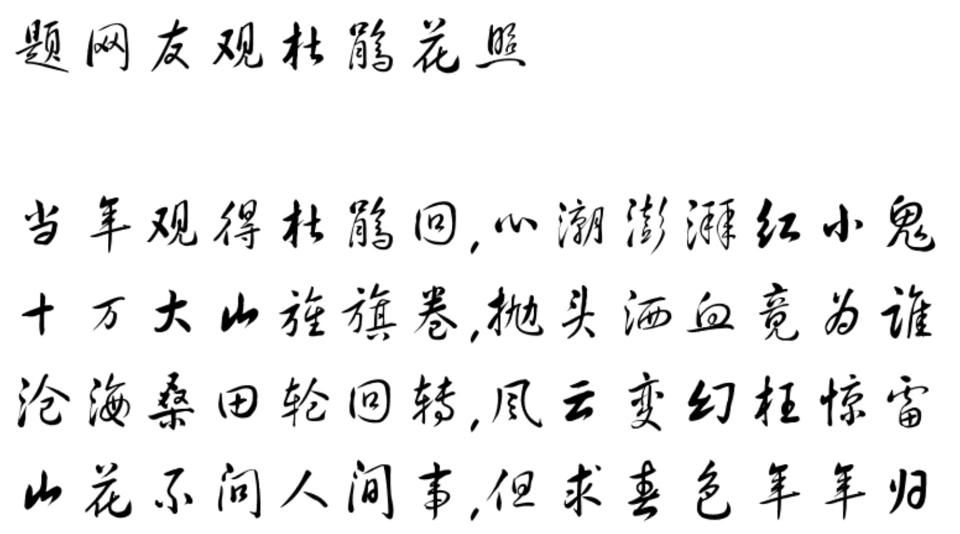 题网友观杜鹃花照
当年观得杜鹃回,心潮澎湃红小鬼
十万大山旌旗卷,抛头洒血竟为谁
沧海桑田轮回转,风云变幻枉惊雷
山花不问人间事,但求春色年年归